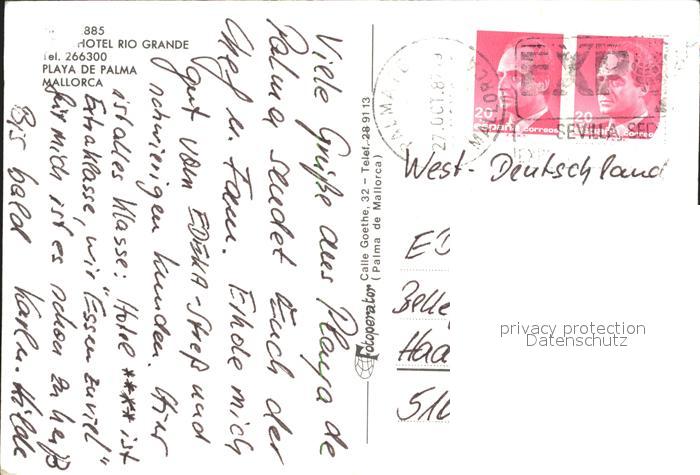 885
HOTEL RIO GRANDE
Tel. 266300
PLAYA DE PALMA
MALLORCA
Viele Grüße aus Playa de
Palma sendet Euch der
Chef u. Fam. Erhole mich
gut vom EDEKA-Streß und
schwierigen Kunden. Hier
ist alles Klasse: Hotel **** ist
Extraklasse, wir "Essen zuviel"
für mich ist es schon zu heiß
Bis bald Karl u. Hilde
Fotoperator Calle Goethe, 32 - Telef. 28 91 13
(Palma de Mallorca)
PALMA
27 OCT. 87
MALLORCA
EXP
SEVILLA
20
españa correos
20
correos
West-Deutschland
ED
Belle
Haa
510
privacy protection
Datenschutz